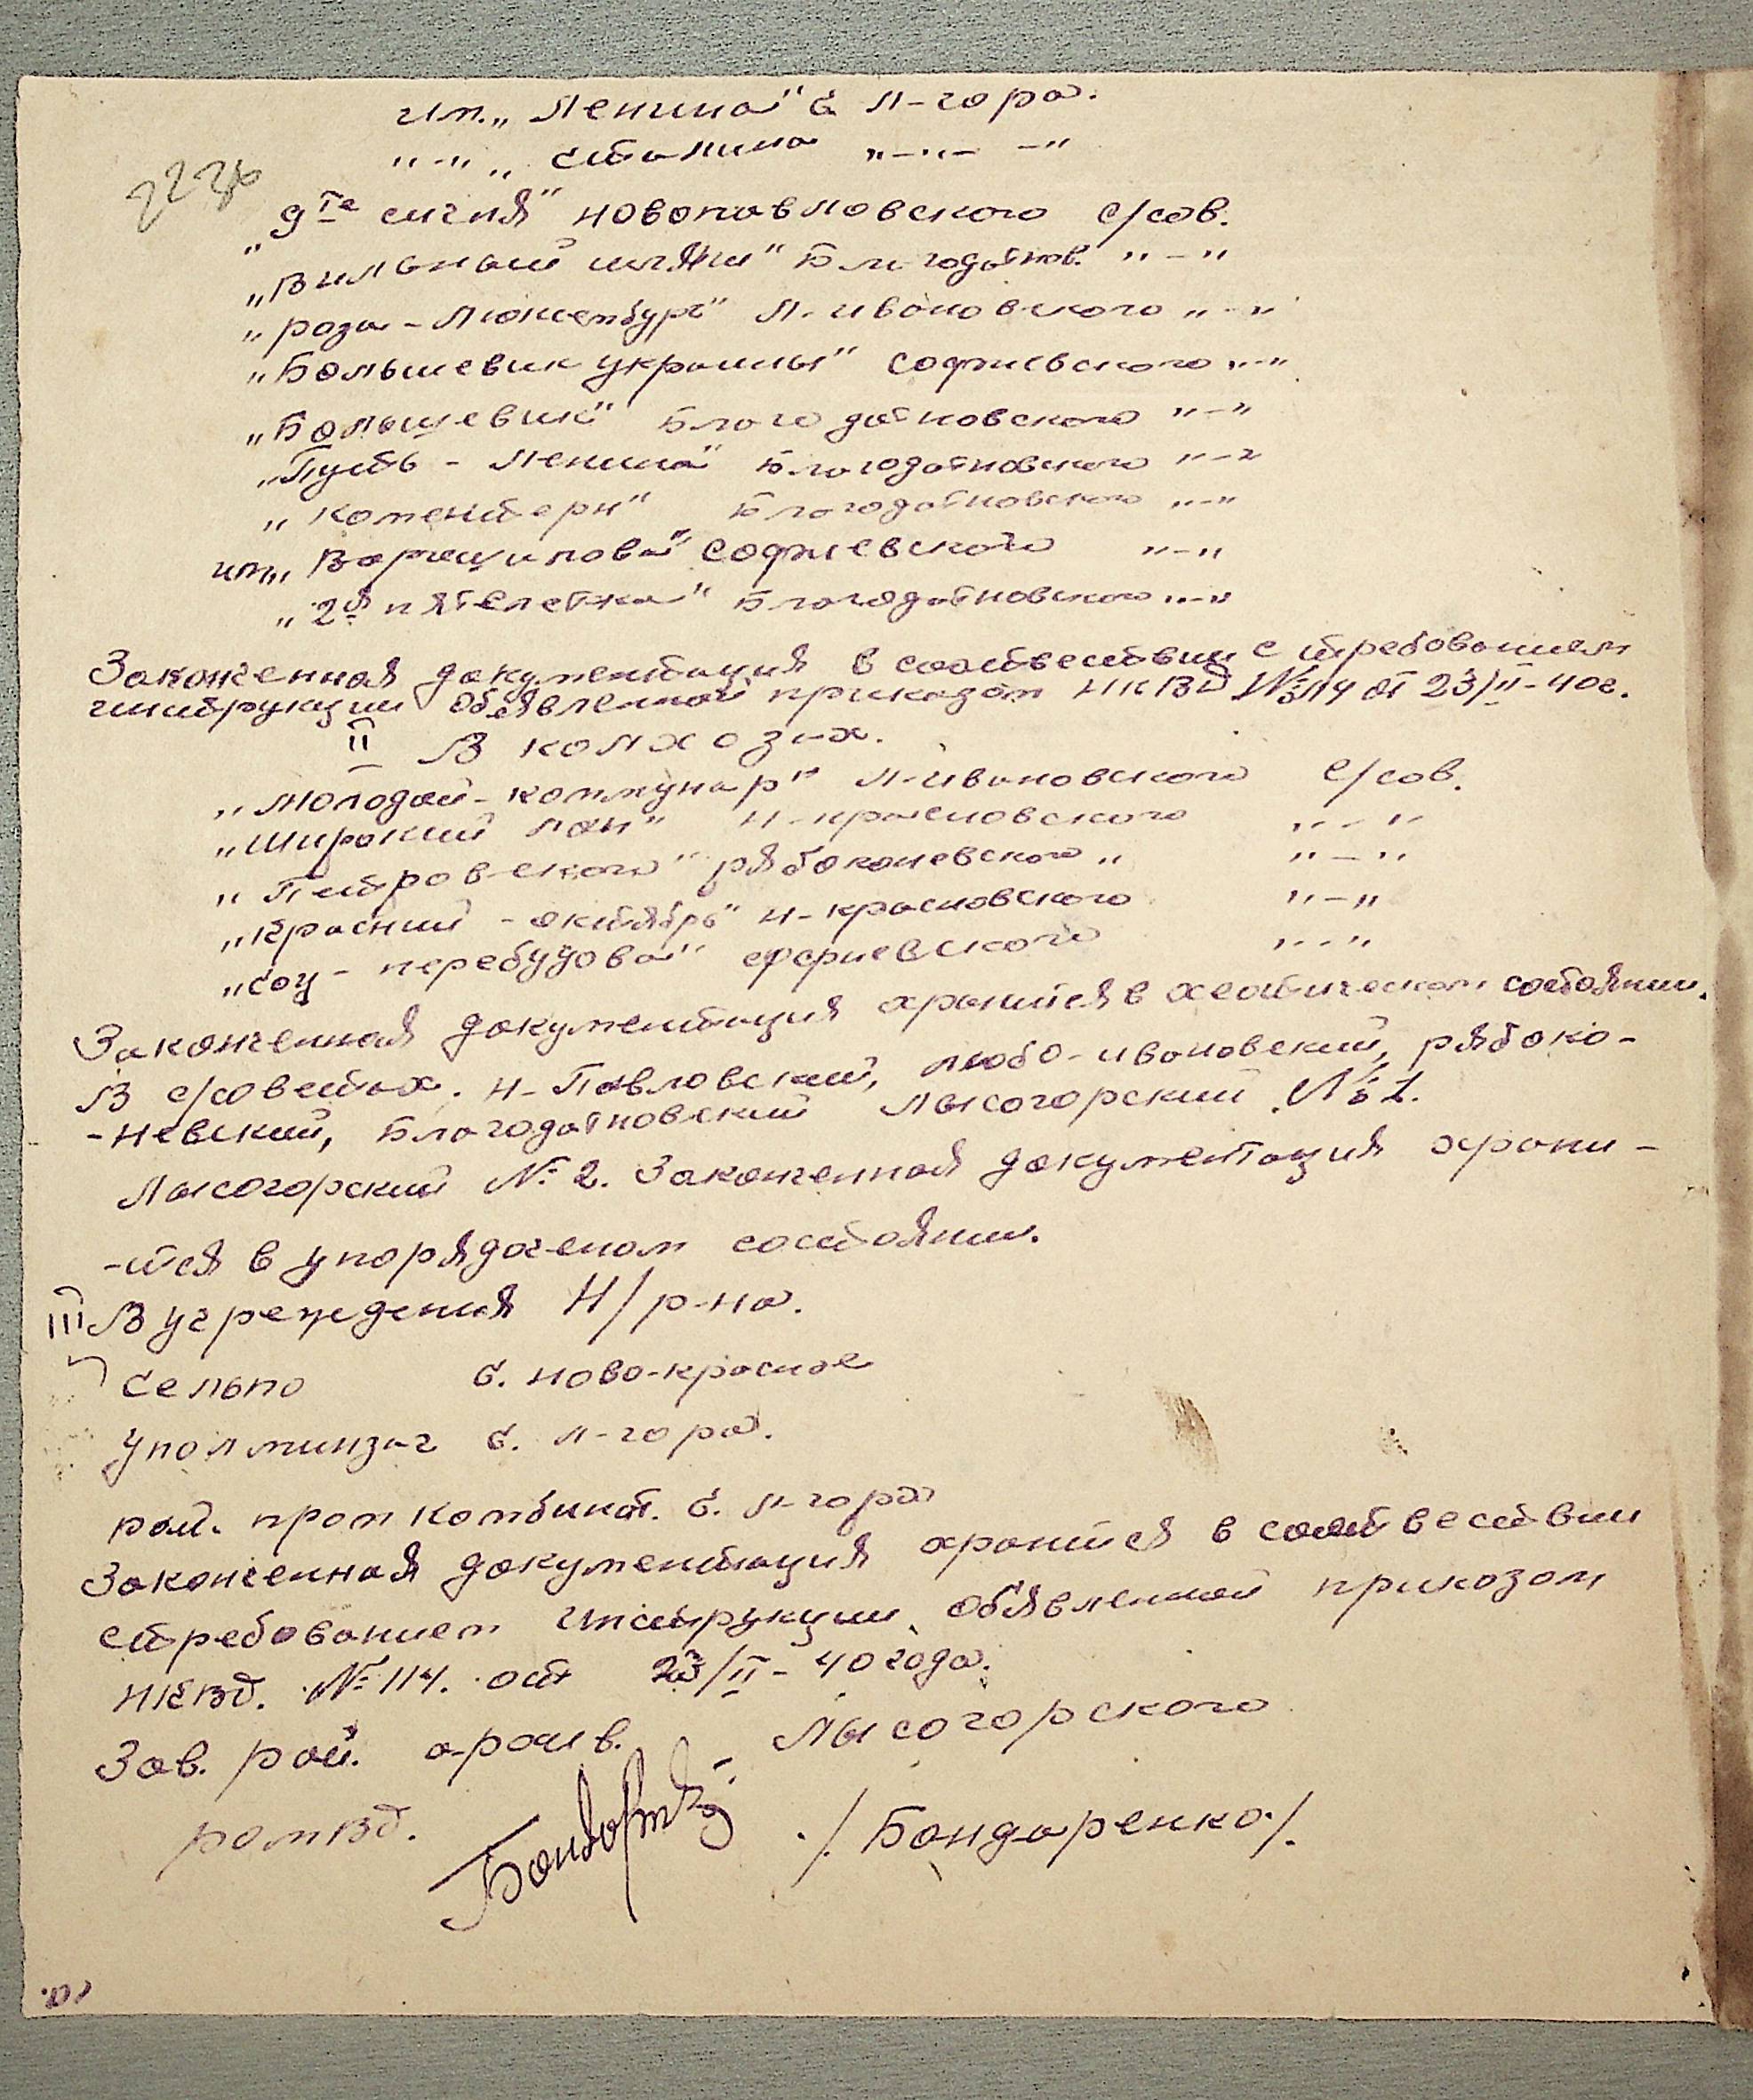 им. „Ленина" с. Л-гора.
„-„ „ Сталина „-„- -„
223б
„9те сичня" новопавловского с/сов.
„Вильный шлях" Благодатнов. „-„
„Роза-Люксембург" Л-Ивановского „-„
„Большевик Украины" Софиевского „-„
„Большевик" Благодатновского „-„
„Путь-Ленина" Благодатновского „-„
„Коментерн" Благодатновского „-„
им„ Ворошилова" Софиевского „-„
„2я пятелетка" Благодатновского „-„
Законченная документация в соответствии с требованием
инструкции объявленной приказом НКВД №114 от 23/II-40г.
II В колхозах.
„Молодой-коммунар" Л-Ивановского с/сов.
„Широкий лан" Н-Красновского „-„
„Петровского" Рябоконевского „ „-„
„Красний-октябрь" Н-Красновского „-„
„Соц-перебудова" Софиевского „-„
Законченная документация хранится в хеотическом состоянии.
В с/советах. Н-Павловский, Любо-Ивановский, Рябоко-
-невский, Благодатновский Лысогорский №1.
Лысогорский №2. Законченная документация храни-
-тся в упорядоченом состоянии.
III В учреждения Н/р-на.
Сельпо с. Ново-красное
Уполминзаг с. Л-гора.
рай. пром комбинат. с. Л-гора
Законченная документация хранится в соответствии
стребованием инструкции объявленной приказом
НКВД. №114. от 23/II-40 года.
Зав. рай. архив. Лысогорского
РОМВД. /Бондаренко/.